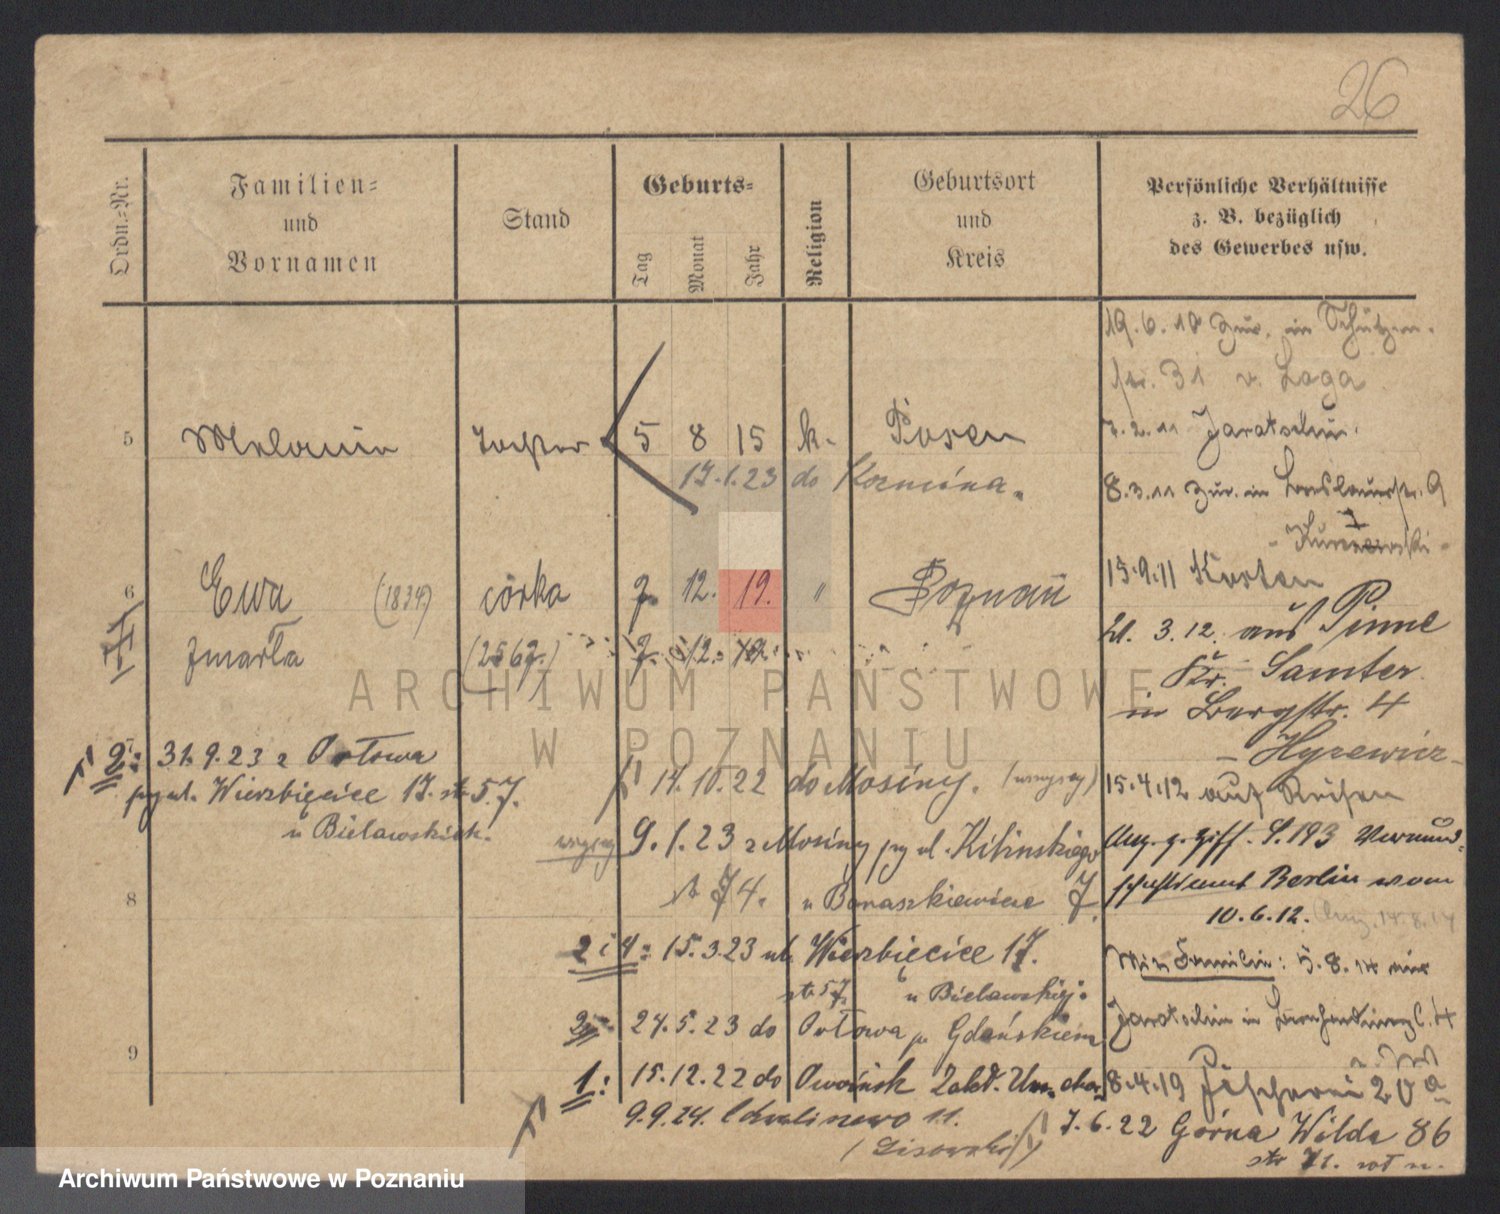 26
Ordn.-Nr.
Familien-
und
Vornamen
Stand
Geburts-
Tag
Monat
Jahr
Religion
Geburtsort
und
Kreis
Persönliche Verhältnisse
z. B. bezüglich
des Gewerbes usw.
5
Melanie
Tochter
5 8 15 k.
Posen
17.1.23 do Koźmina.
6
Ewa (1834)
córka
7. 12. 19. "
Poznań
zmarła
7. 12. 19.
2: 31.9.23 z Orłowa
przy ul. Wierzbięcice 17. str. 57.
u Bielawskich.
14.10.22 do Mosiny. (wszyscy)
wszyscy 9.1.23 z Mosiny przy ul. Kilińskiego
74.
u Banaszkiewicz 7.
8
2 i 4: 15.3.23 ul. Wierzbięcice 17.
str. 57. u Bielawskiej.
2: 24.5.23 do Orłowa p. Gdańskiem
9
1: 15.12.22 do Owińsk Zakł. Um. chor.
9.9.24. Chwalinowo 11.
(Lisowski)
19.6.10 Zur. in Schützen-
str. 31 v. Laga
7.2.11 Jarotschin.
8.3.11 Zur. in Breslauerstr. 9
15.9.11 Kosten
21.3.12. aus Pinne
Kr. Samter
in Bergstr. 4
- Hyrewicz -
15.4.12 auf Reisen
Ang. g. Ziff. S. 193 Vormund-
schaftsamt Berlin vom
10.6.12. Ang. 14.8.14
Mit Familie: 5.8.14 aus
Jarotschin in 4
8.4.19 Fischerei 20a
7.6.22 Górna Wilda 86
str. 71.
ARCHIWUM PAŃSTWOWE
W POZNANIU
Archiwum Państwowe w Poznaniu